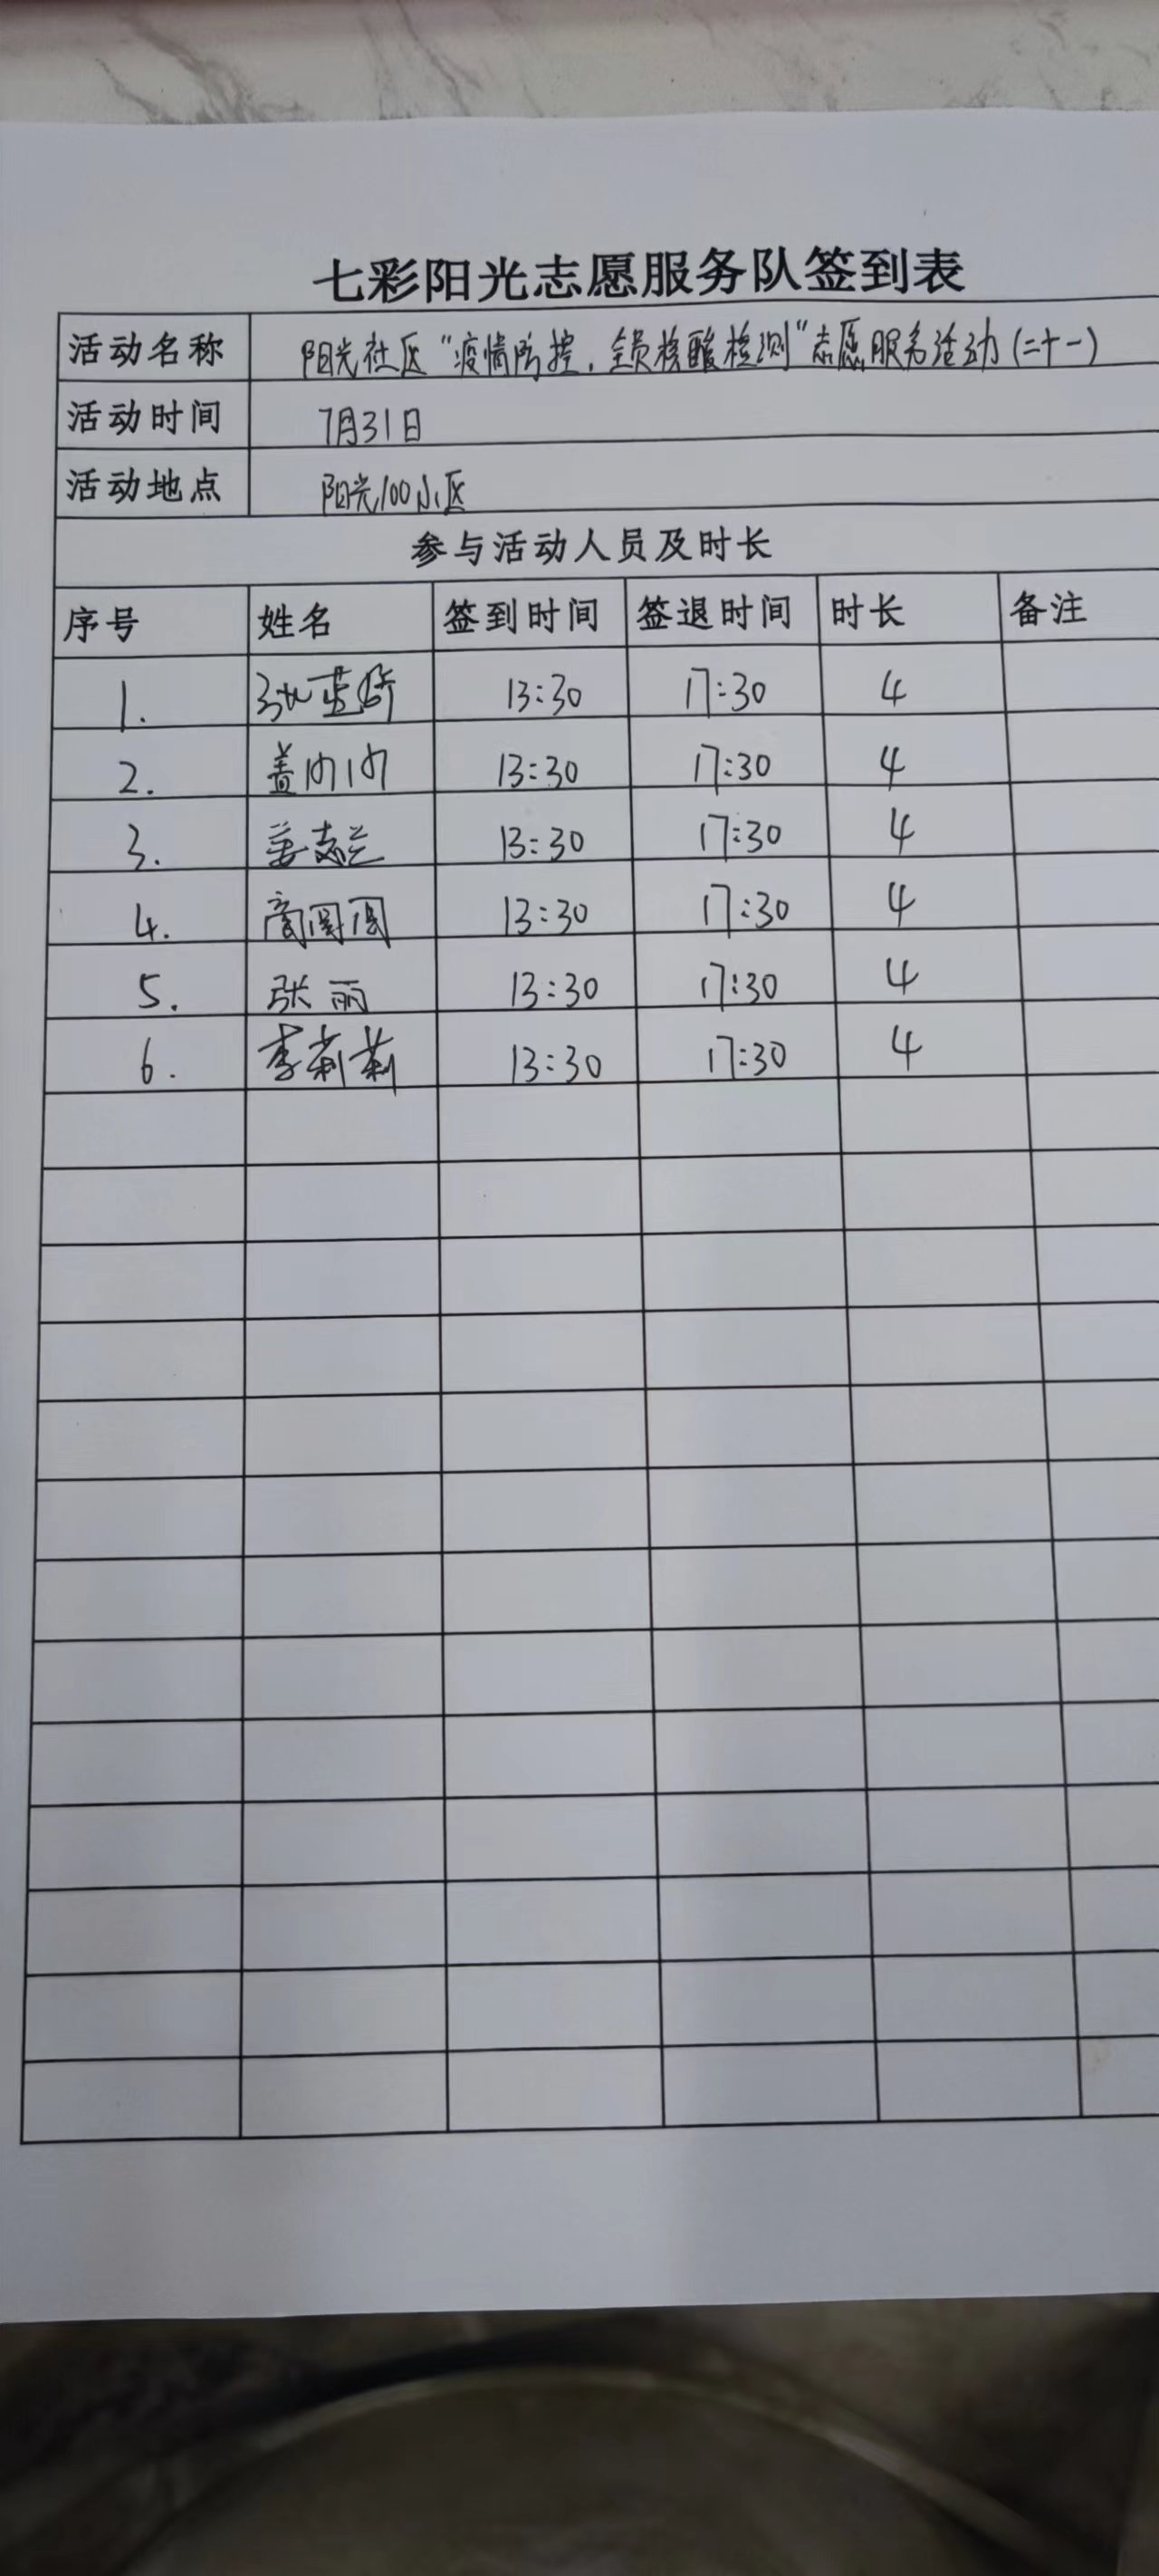 七彩阳光志愿服务队签到表
活动名称 阳光社区“疫情防控,全员核酸检测”志愿服务活动(二十一)
活动时间 7月31日
活动地点 阳光100小区
参与活动人员及时长
序号 姓名 签到时间 签退时间 时长 备注
1. 13:30 17:30 4
2. 盖 13:30 17:30 4
3. 姜志兰 13:30 17:30 4
4. 13:30 17:30 4
5. 张丽 13:30 17:30 4
6. 李莉莉 13:30 17:30 4